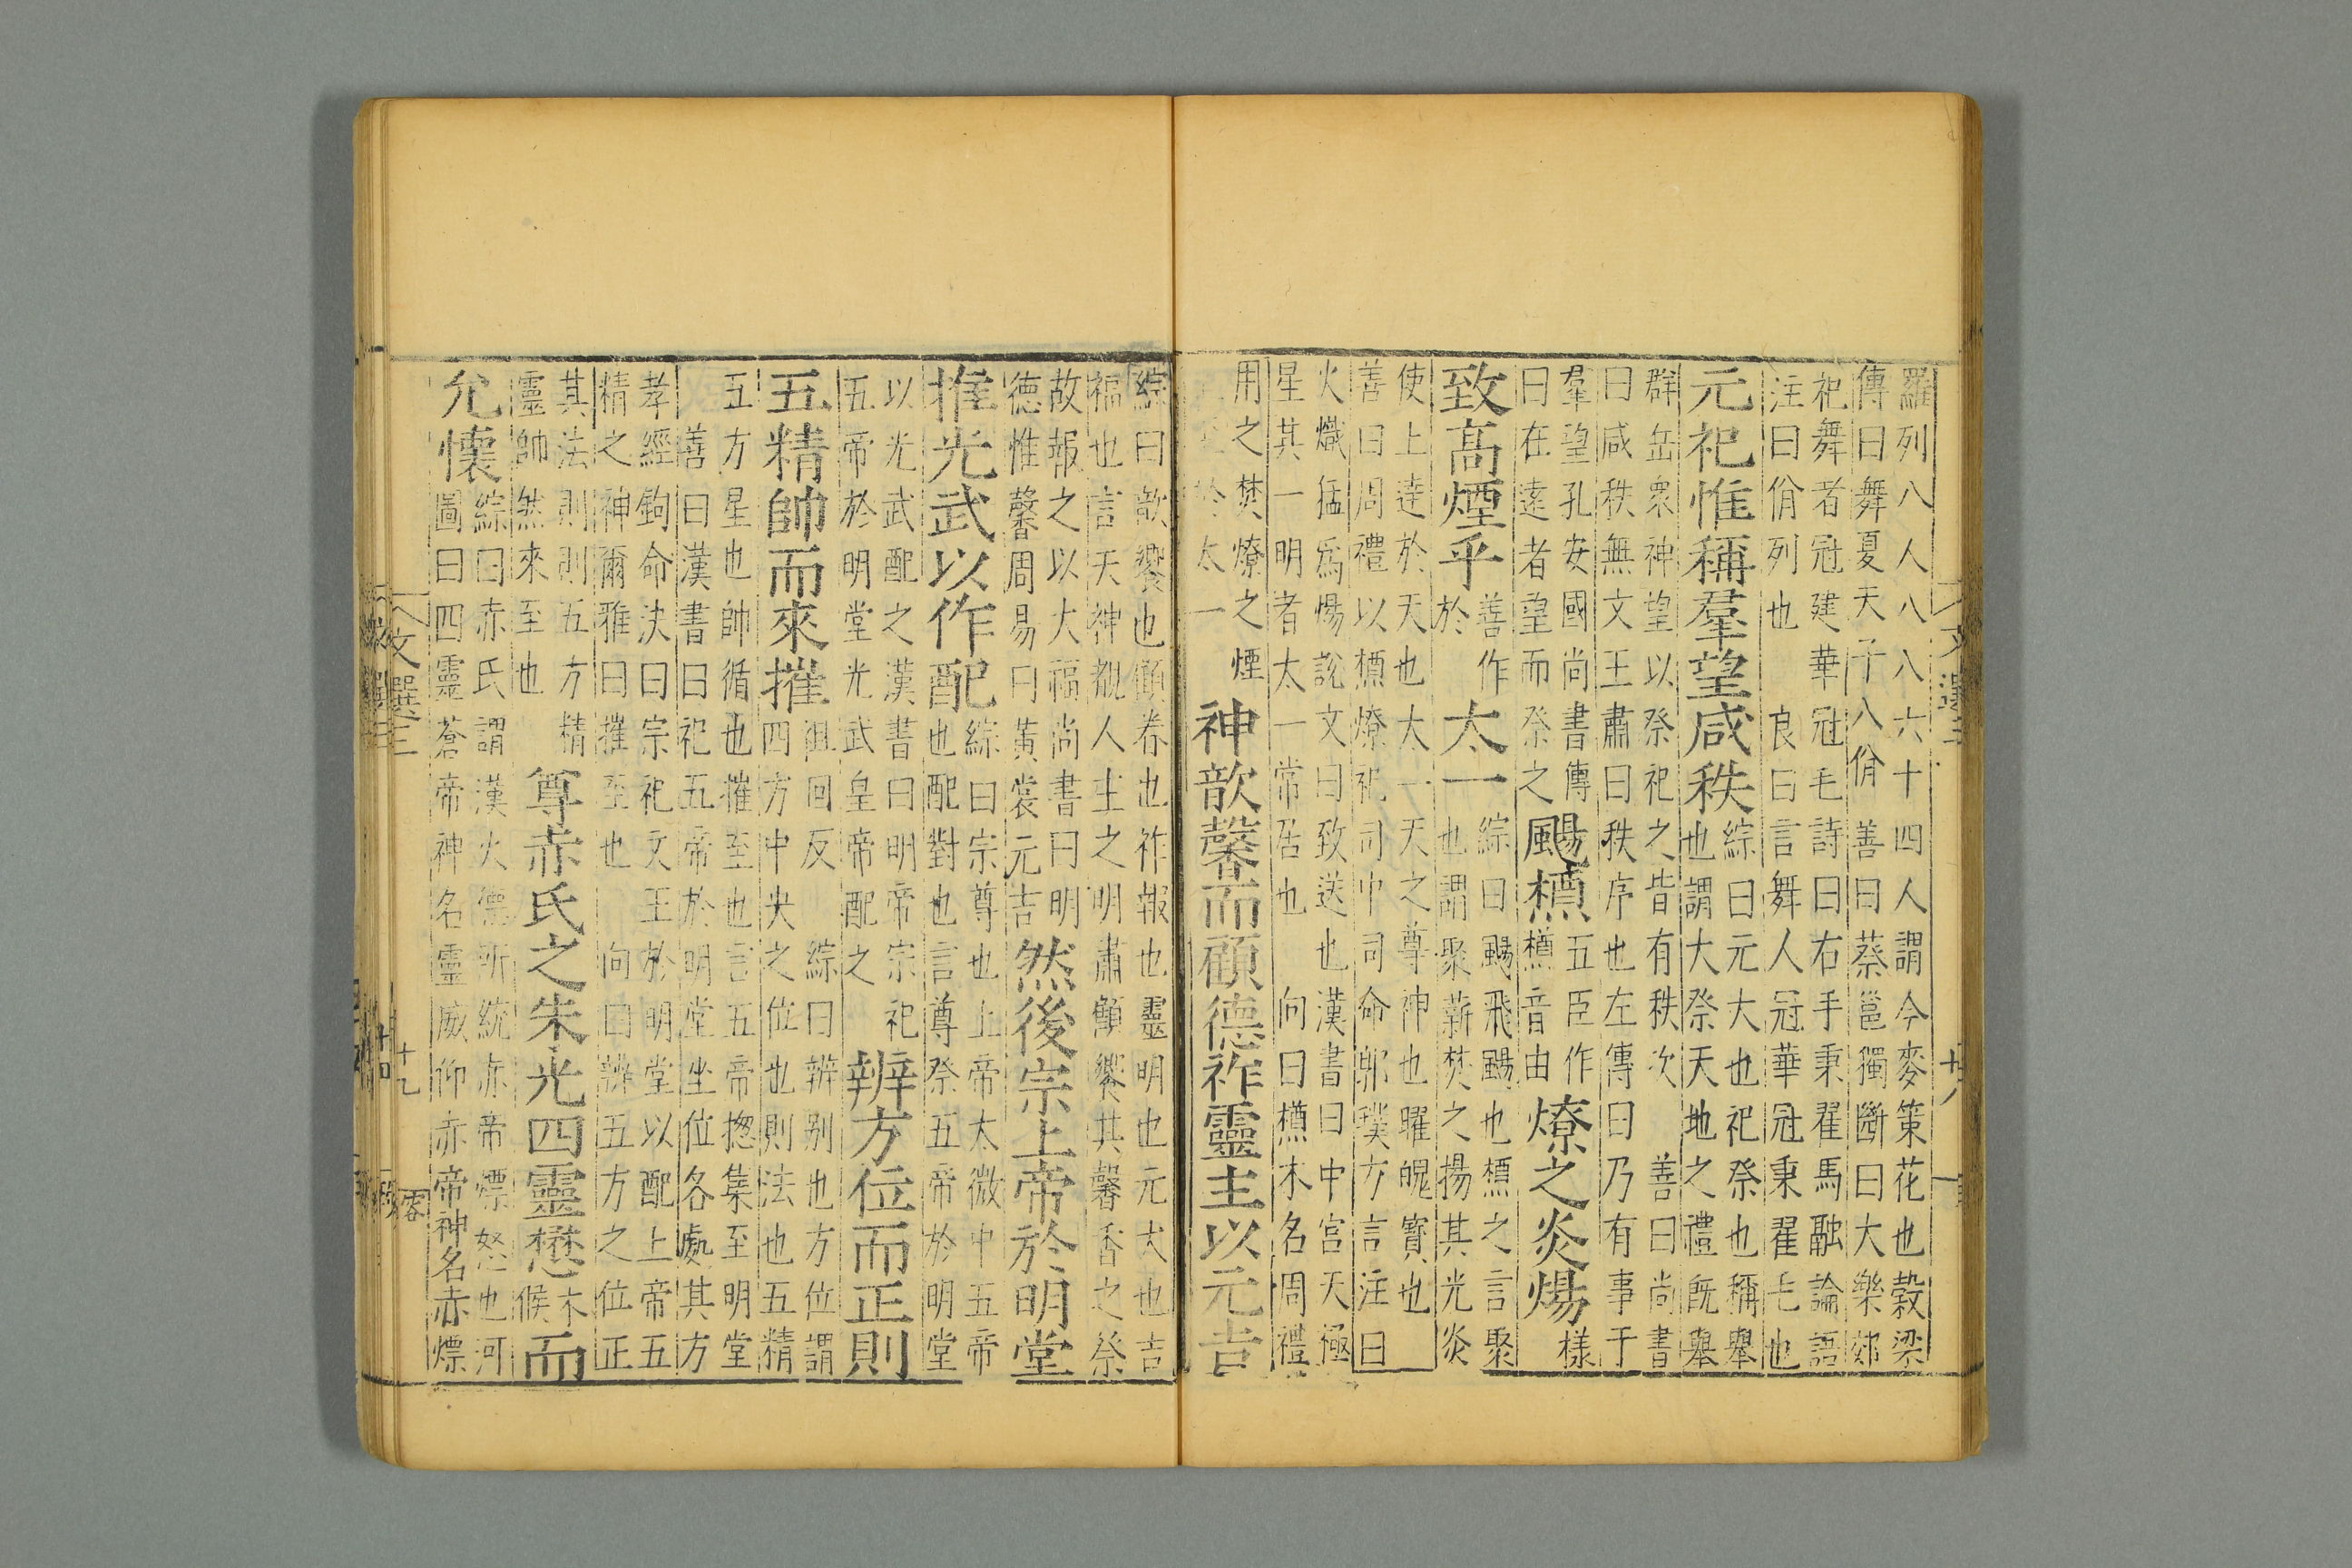 羅列八人八八六十四人謂今麥策花也穀梁
傳曰舞夏天子八佾 善曰蔡邕獨斷曰大樂郊
祀舞者冠建華冠毛詩曰右手秉翟馬融論語
注曰佾列也 良曰言舞人冠華冠秉翟毛也
元祀惟稱羣望咸秩
綜曰元大也祀祭也稱舉
也謂大祭天地之禮旣舉
群岳衆神望以祭祀之皆有秩次 善曰尚書
曰咸秩無文王肅曰秩序也左傳曰乃有事于
羣望孔安國尚書傳
曰在遠者望而祭之
颺槱
五臣作
槱音由
燎之炎煬
樣
致高煙乎
善作
於
太一
綜曰颺飛颺也槱之言聚
也謂聚薪焚之揚其光炎
使上達於天也太一天之尊神也曜魄寶也
善曰周禮以槱燎祀司中司命郭璞方言注曰
火熾猛爲煬說文曰致送也漢書曰中宮天極
星其一明者太一常居也 向曰槱木名周禮
用之焚燎之煙
於太一
神歆馨而顧德祚靈主以元吉
綜曰歆饗也顧眷也祚報也靈明也元大也吉
福也言天神覩人主之明肅顧饗其馨香之祭
故報之以大福尚書曰明
德惟馨周易曰黃裳元吉
然後宗上帝於明堂
推光武以作配
綜曰宗尊也上帝太微中五帝
也配對也言尊祭五帝於明堂
以光武配之漢書曰明帝宗祀
五帝於明堂光武皇帝配之
辨方位而正則
五精帥而來摧
徂回反 綜曰辨别也方位謂
四方中央之位也則法也五精
五方星也帥循也摧至也言五帝揔集至明堂
善曰漢書曰祀五帝於明堂坐位各處其方
孝經鉤命决曰宗祀文王於明堂以配上帝五
精之神爾雅曰摧至也 向曰辨五方之位正
其法則則五方精
靈帥然來至也
尊赤氏之朱光四靈懋
木
候
而
允懷
綜曰赤氏謂漢火德所統赤帝熛怒也河
圖曰四靈蒼帝神名靈威仰赤帝神名赤熛
文選三
十九